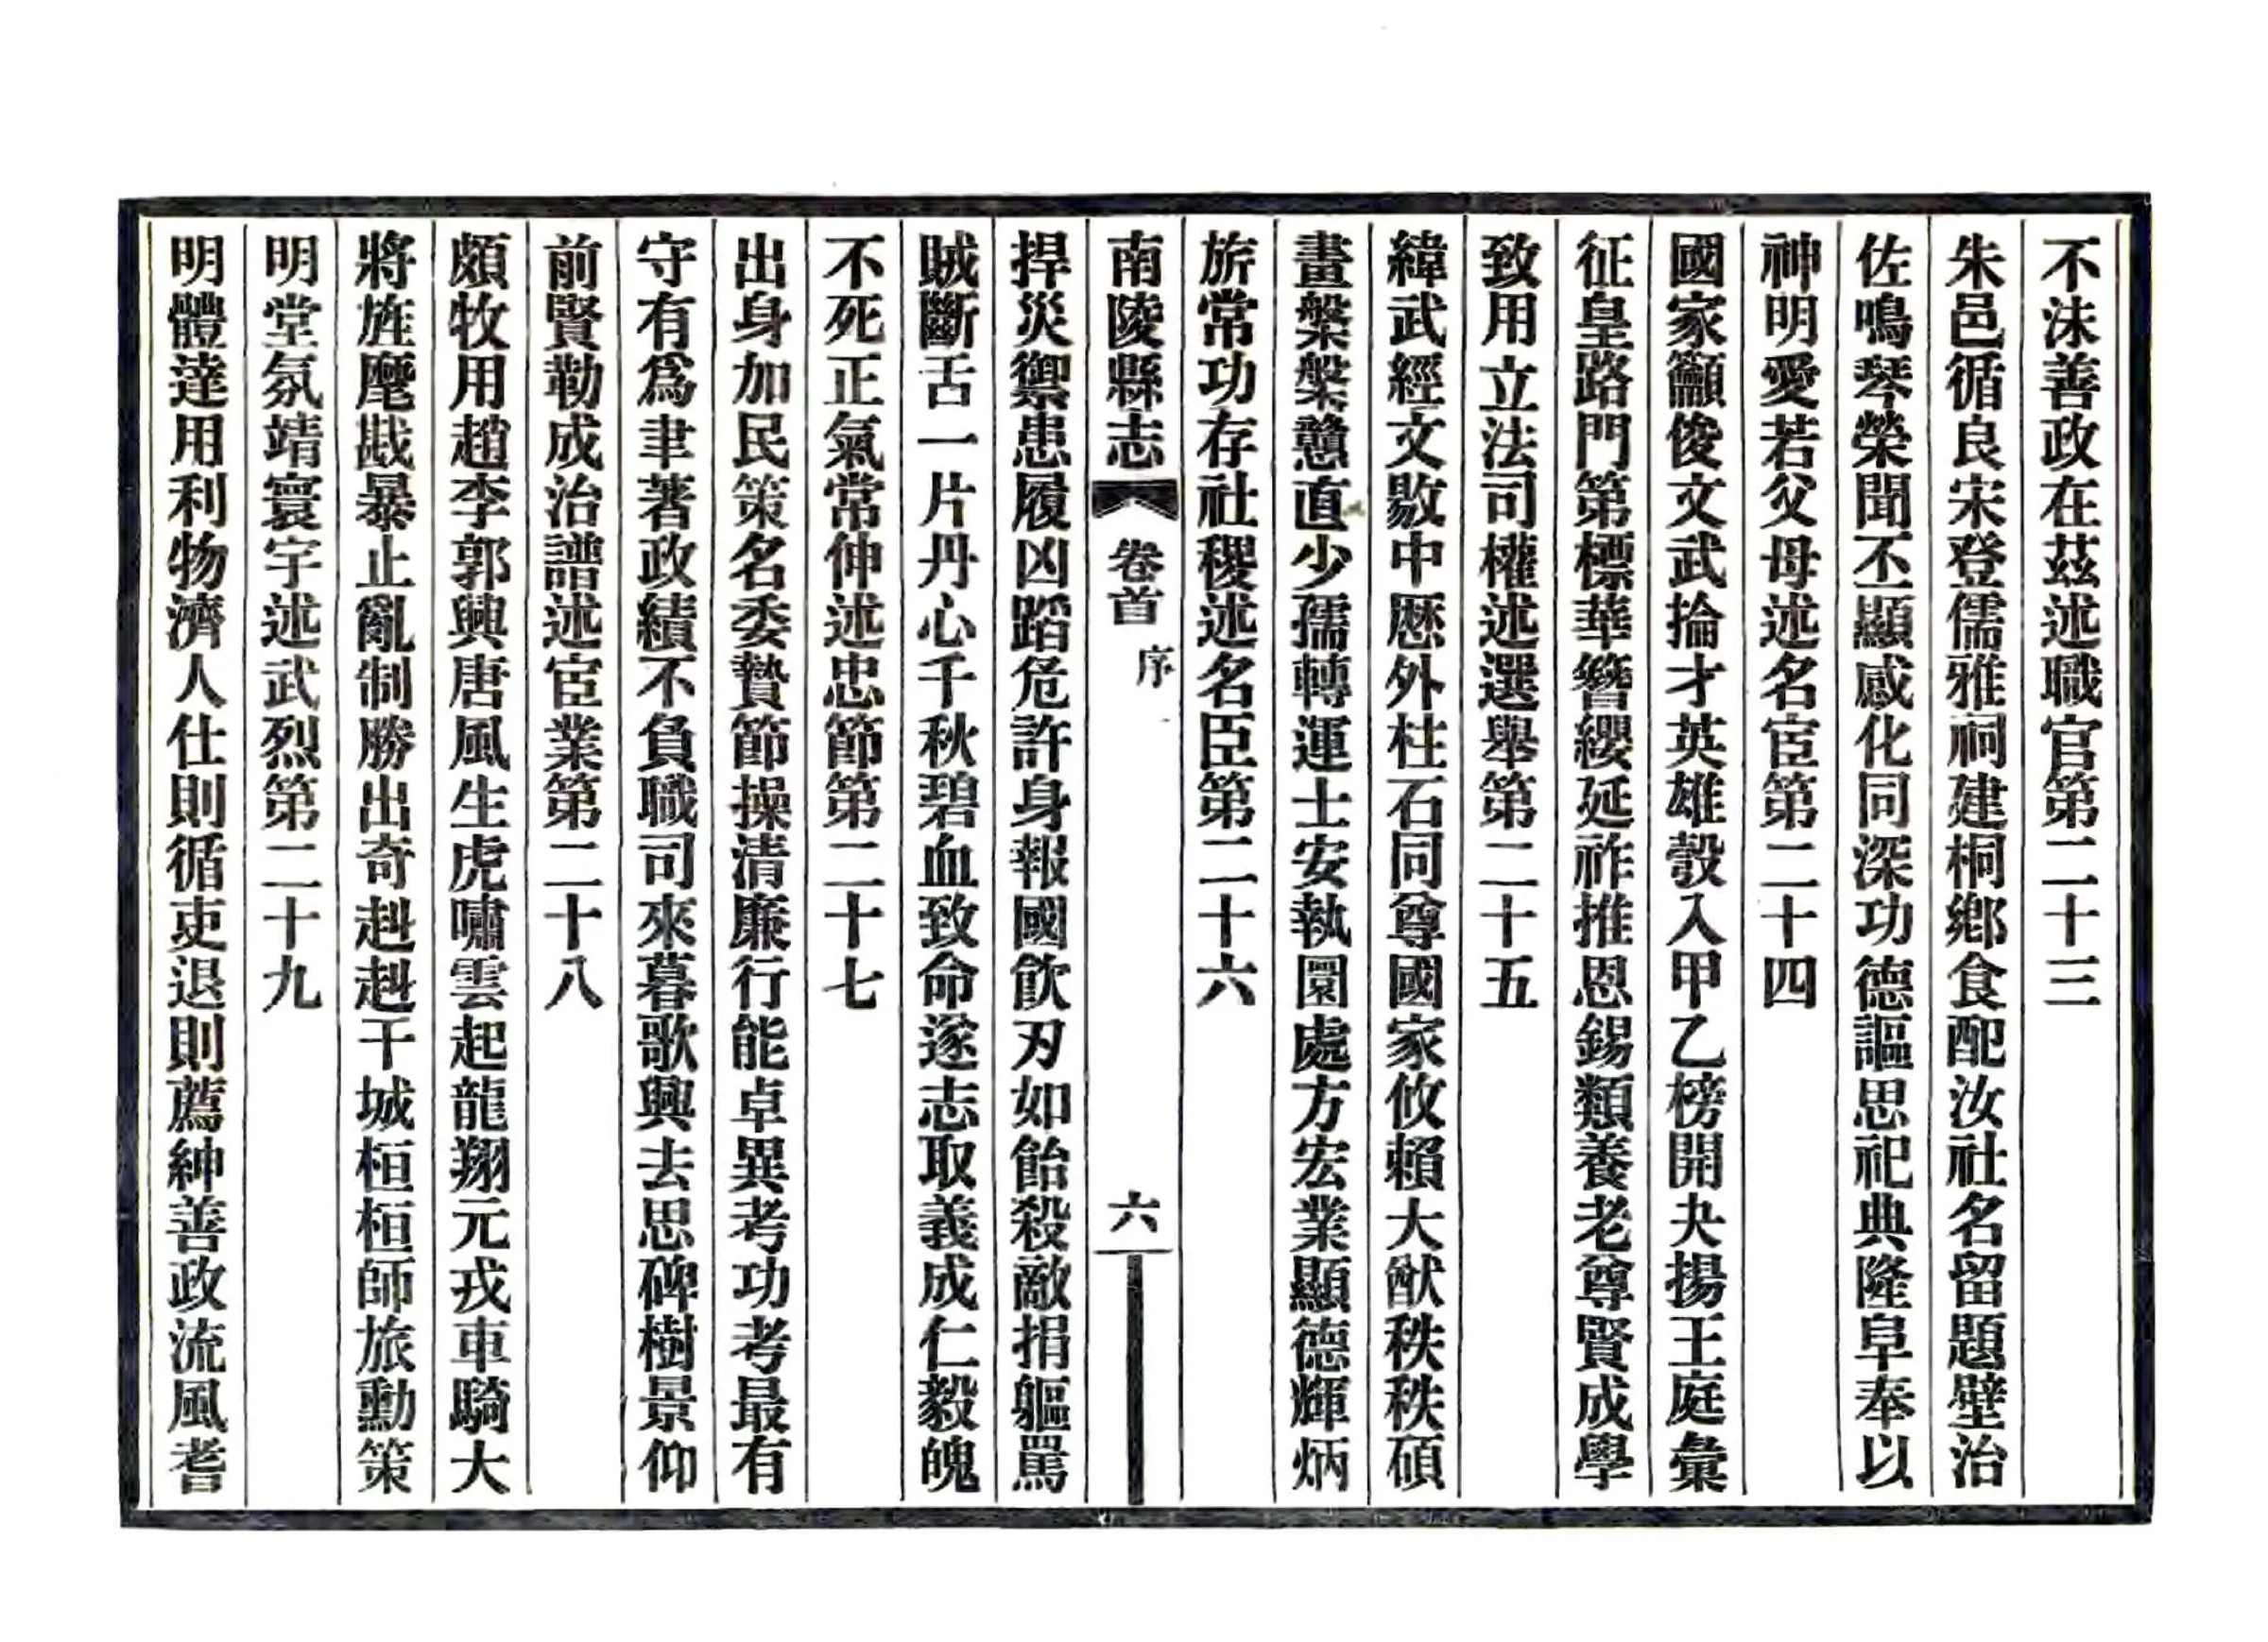 不沬善政在茲述職官第二十三
朱邑循良宋登儒雅祠建桐鄉食配汝社名留題壁治
佐鳴琴榮聞不顯感化同深功德謳思祀典隆阜奉以
神明愛若父母述名宦第二十四
國家籲俊文武掄才英雄彀入甲乙榜開夬揚王庭彙
征皇路門第標華簪纓延祚推恩錫類養老尊賢成學
致用立法司權述選舉第二十五
緯武經文敭中歷外柱石同尊國家攸賴大猷秩秩碩
畫槃槃戇直少孺轉運士安執圜處方宏業顯德輝炳
旂常功存社稷述名臣第二十六
南陵縣志 卷首 序 六
捍災禦患履凶蹈危許身報國飲刃如飴殺敵捐軀罵
賊斷舌一片丹心千秋碧血致命遂志取義成仁毅魄
不死正氣常伸述忠節第二十七
出身加民策名委贄節操清廉行能卓異考功考最有
守有爲聿著政績不負職司來暮歌興去思碑樹景仰
前賢勒成治譜述宦業第二十八
頗牧用趙李郭興唐風生虎嘯雲起龍翔元戎車騎大
將旌麾戡暴止亂制勝出奇赳赳干城桓桓師旅勳策
明堂氛靖寰宇述武烈第二十九
明體達用利物濟人仕則循吏退則薦紳善政流風耆